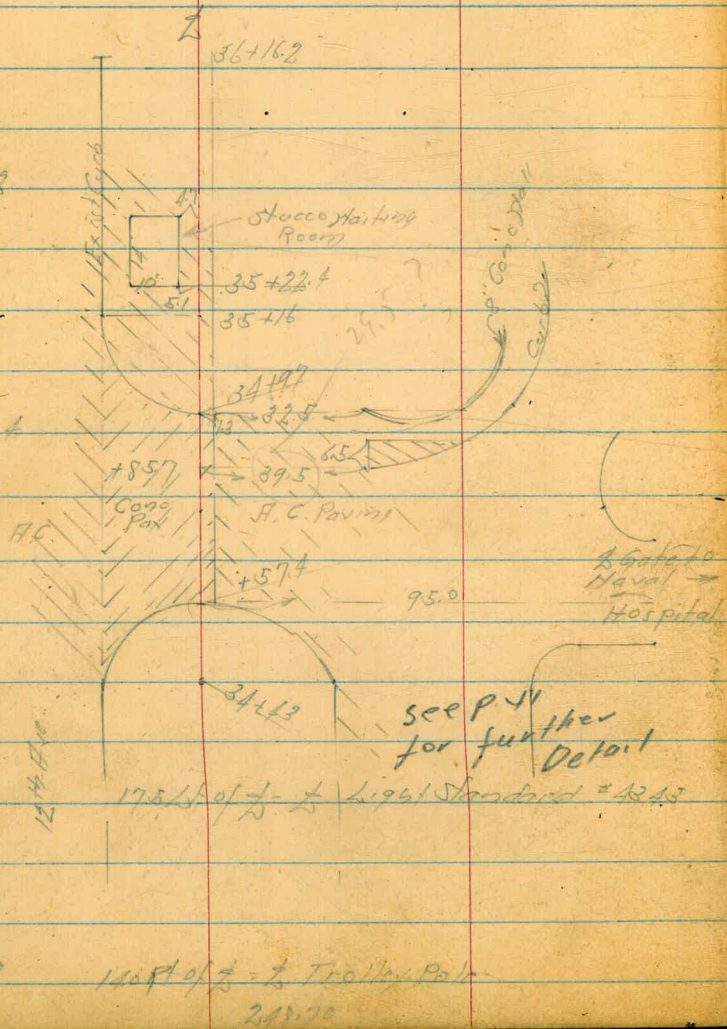 36+16.2
Exist Curb
4.3
Stucco Waiting
Room
14
10
5.1
35+22.4
35+16
8" Conc Wall
Curb
29.5
34+97
13
32.5
6.5
+85.7
39.5
Conc
Pav
A.C. Paving
A.C.
+57.4
95.0
Gate to
Naval →
Hospital
34+43
see p 41
for further
Detail
12th Ave
Light Standard #4343
Trolley Pole